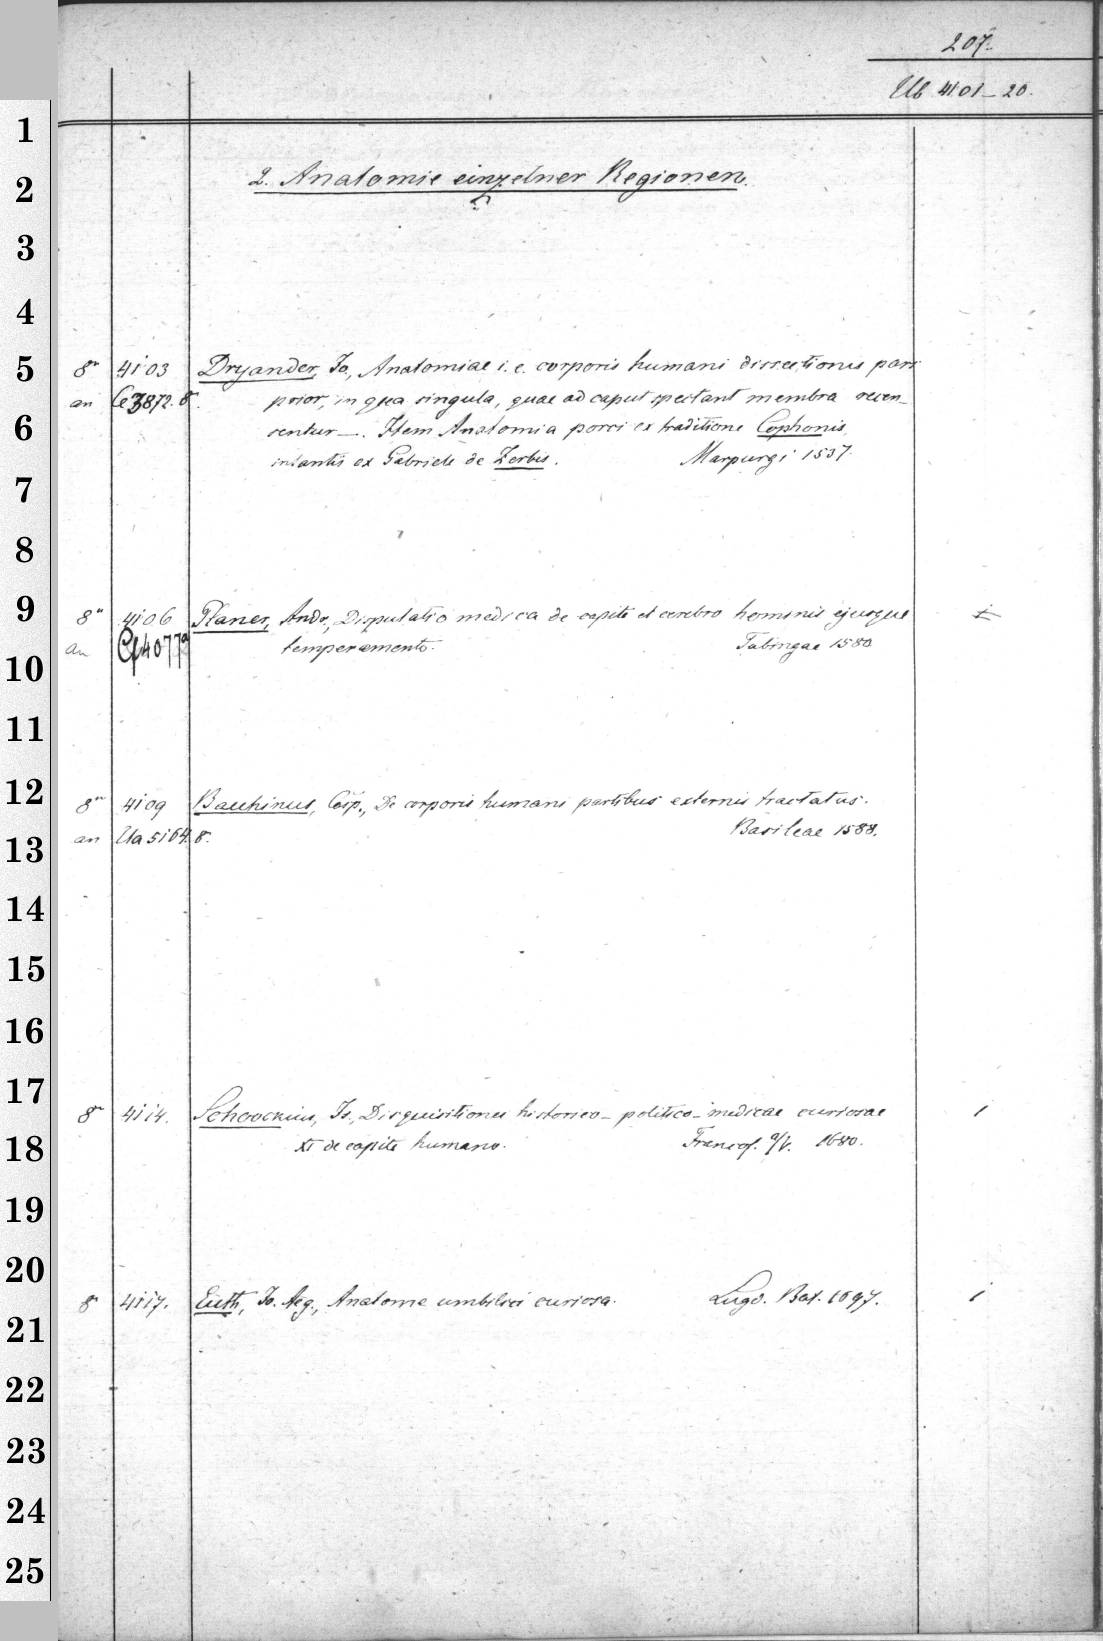 207.
Ub 4101-20.
1
2
3
4
5
6
7
8
9
10
11
12
13
14
15
16
17
18
19
20
21
22
23
24
25
2. Anatomie einzelner Regionen.
8° 4103 Dryander, Jo., Anatomiae i. e. corporis humani dissectionis pars
an Ce 3872. 8°. prior, in qua singula, quae ad caput spectant membra recen-
sentur —. Item Anatomia porci ex traditione Cophonis,
infantis ex Gabriele de Zerbis. Marpurgi 1537.
8° 4106 Planer, Andr., Disputatio medica de capite et cerebro hominis ejusque
an Cf 4077a temperamento. Tubingae 1580
8° 4109 Bauhinus, Casp., De corporis humani partibus externis tractatus.
an Ua 5164. 8°. Basileae 1588.
8° 4114. Schoockius, Is., Disquisitiones historico-politico-medicae curiosae
XI de capite humano. Francof. a/V. 1680. 1
8° 4117. Euth, Jo. Aeg., Anatome umbilici curiosa. Lugd. Bat. 1697. 1